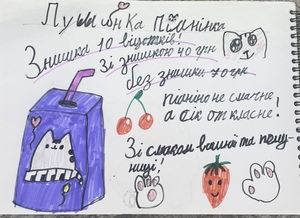 Лулыбнка Піанінка
Знишка 10 віцотків!
Зі знишкою 40 грн
без знишки 70 грн
піаніно не смачне,
а сік от класне!
Зі смаком вашні та полу-
ниці!